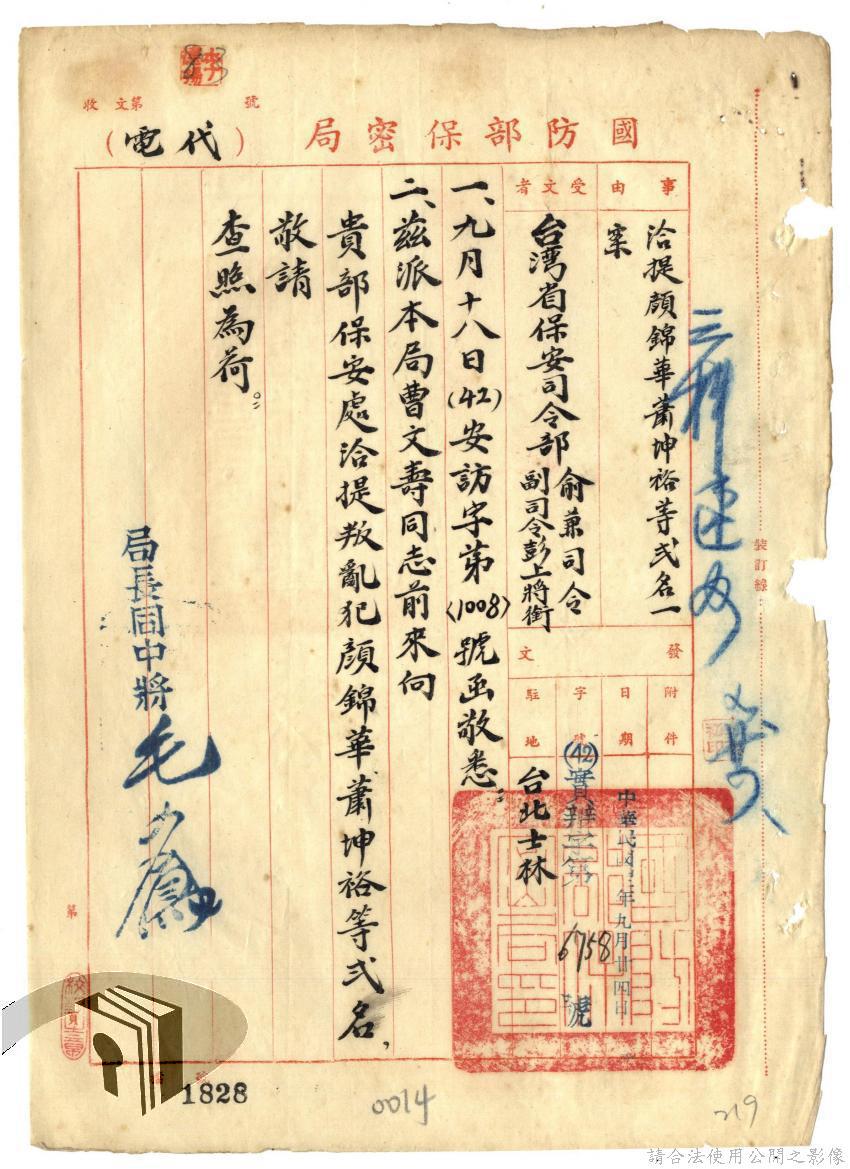 收文第　號
國防部保密局（代電）
事由
洽提顏錦華蕭坤裕等弍名一
案
受文者
台湾省保安司令部俞兼司令
副司令彭上將銜
發文
附件
日期
中華民國四二年九月廿四日
字號
(42)實辦字第6758號
駐地
台北士林
一、九月十八日(42)安訪字第〈1008〉號函敬悉。
二、茲派本局曹文壽同志前來向
貴部保安處洽提叛亂犯顏錦華蕭坤裕等弍名，
敬請
查照為荷。
局長周中將毛
裝訂線
第
1828
0014
219
請合法使用公開之影像